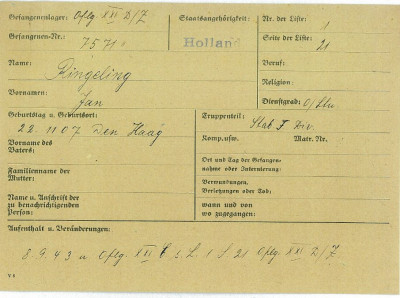 Gefangenenlager: Oflg. XXI D/Z
Gefangenen-Nr.: 7571
Name:
Ringeling
Vornamen:
Jan
Geburtstag u. Geburtsort:
22.11.07 Den Haag
Vorname des
Vaters:
Familienname der
Mutter:
Name u. Anschrift der
zu benachrichtigenden
Person:
Staatsangehörigkeit:
Holland
Nr. der Liste: 1
Seite der Liste: 21
Beruf:
Religion:
Dienstgrad: O/Ltn
Truppenteil: Stab I Div.
Komp. usw. Matr. Nr.
Ort und Tag der Gefangen-
nahme oder Internierung:
Verwundungen,
Verletzungen oder Tod:
wann und von
wo zugegangen:
Aufenthalt u. Veränderungen:
8.9.43 Oflg. XXI C L. 1 S. 21 Oflg. XXI D/Z